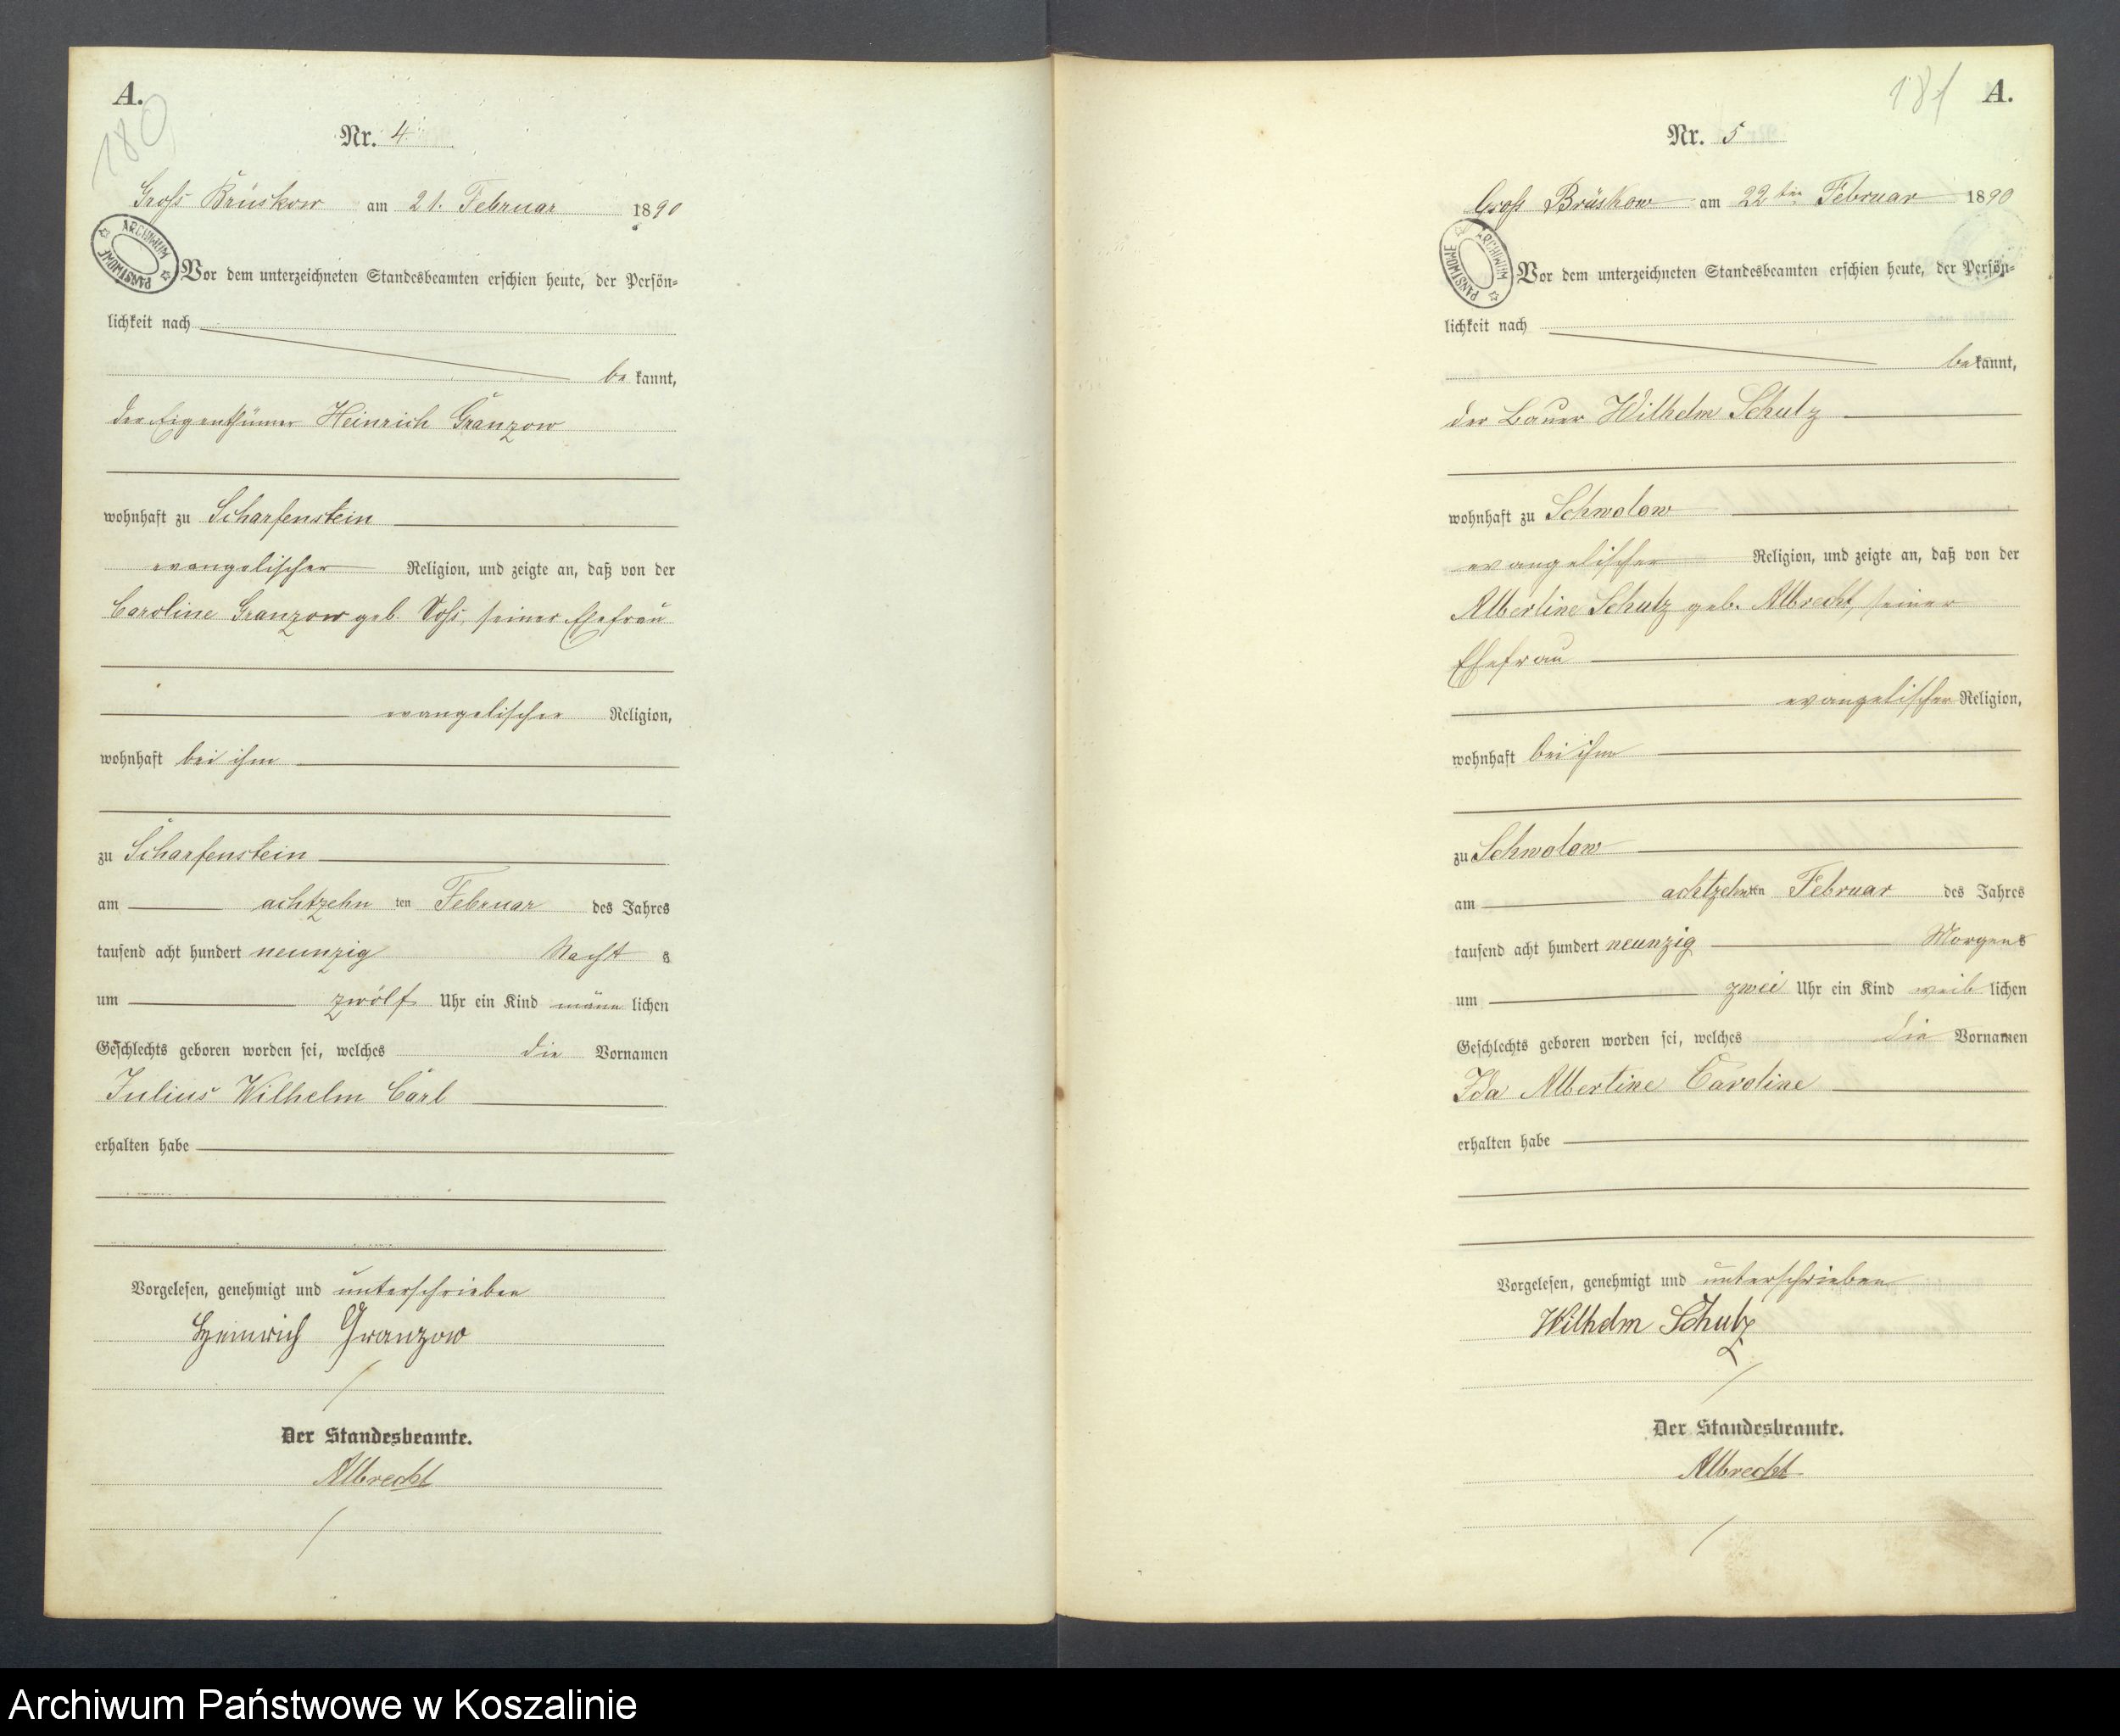 A.
180
Nr. 4
Groß Brüskow am 21. Februar 1890
ARCHIWUM PAŃSTWOWE
Vor dem unterzeichneten Standesbeamten erschien heute, der Persön-
lichkeit nach
be kannt,
der Eigenthümer Heinrich Granzow
wohnhaft zu Scharfenstein
evangelischer Religion, und zeigte an, daß von der
Caroline Granzow geb. Voß, seiner Ehefrau
evangelischer Religion,
wohnhaft bei ihm
zu Scharfenstein
am achtzehn ten Februar des Jahres
tausend acht hundert neunzig Nacht s
um zwölf Uhr ein Kind männ lichen
Geschlechts geboren worden sei, welches die Vornamen
Julius Wilhelm Carl
erhalten habe
Vorgelesen, genehmigt und unterschrieben
Heinrich Granzow
Der Standesbeamte.
Albrecht
181 A.
Nr. 5
Groß Brüskow am 22ten Februar 1890
ARCHIWUM PAŃSTWOWE
Vor dem unterzeichneten Standesbeamten erschien heute, der Persön-
lichkeit nach
bekannt,
der Bauer Wilhelm Schulz
wohnhaft zu Schwolow
evangelischer Religion, und zeigte an, daß von der
Albertine Schulz geb. Albrecht, seiner
Ehefrau
evangelischer Religion,
wohnhaft bei ihm
zu Schwolow
am achtzehnten Februar des Jahres
tausend acht hundert neunzig Morgens
um zwei Uhr ein Kind weib lichen
Geschlechts geboren worden sei, welches die Vornamen
Ida Albertine Caroline
erhalten habe
Vorgelesen, genehmigt und unterschrieben
Wilhelm Schulz
Der Standesbeamte.
Albrecht
Archiwum Państwowe w Koszalinie